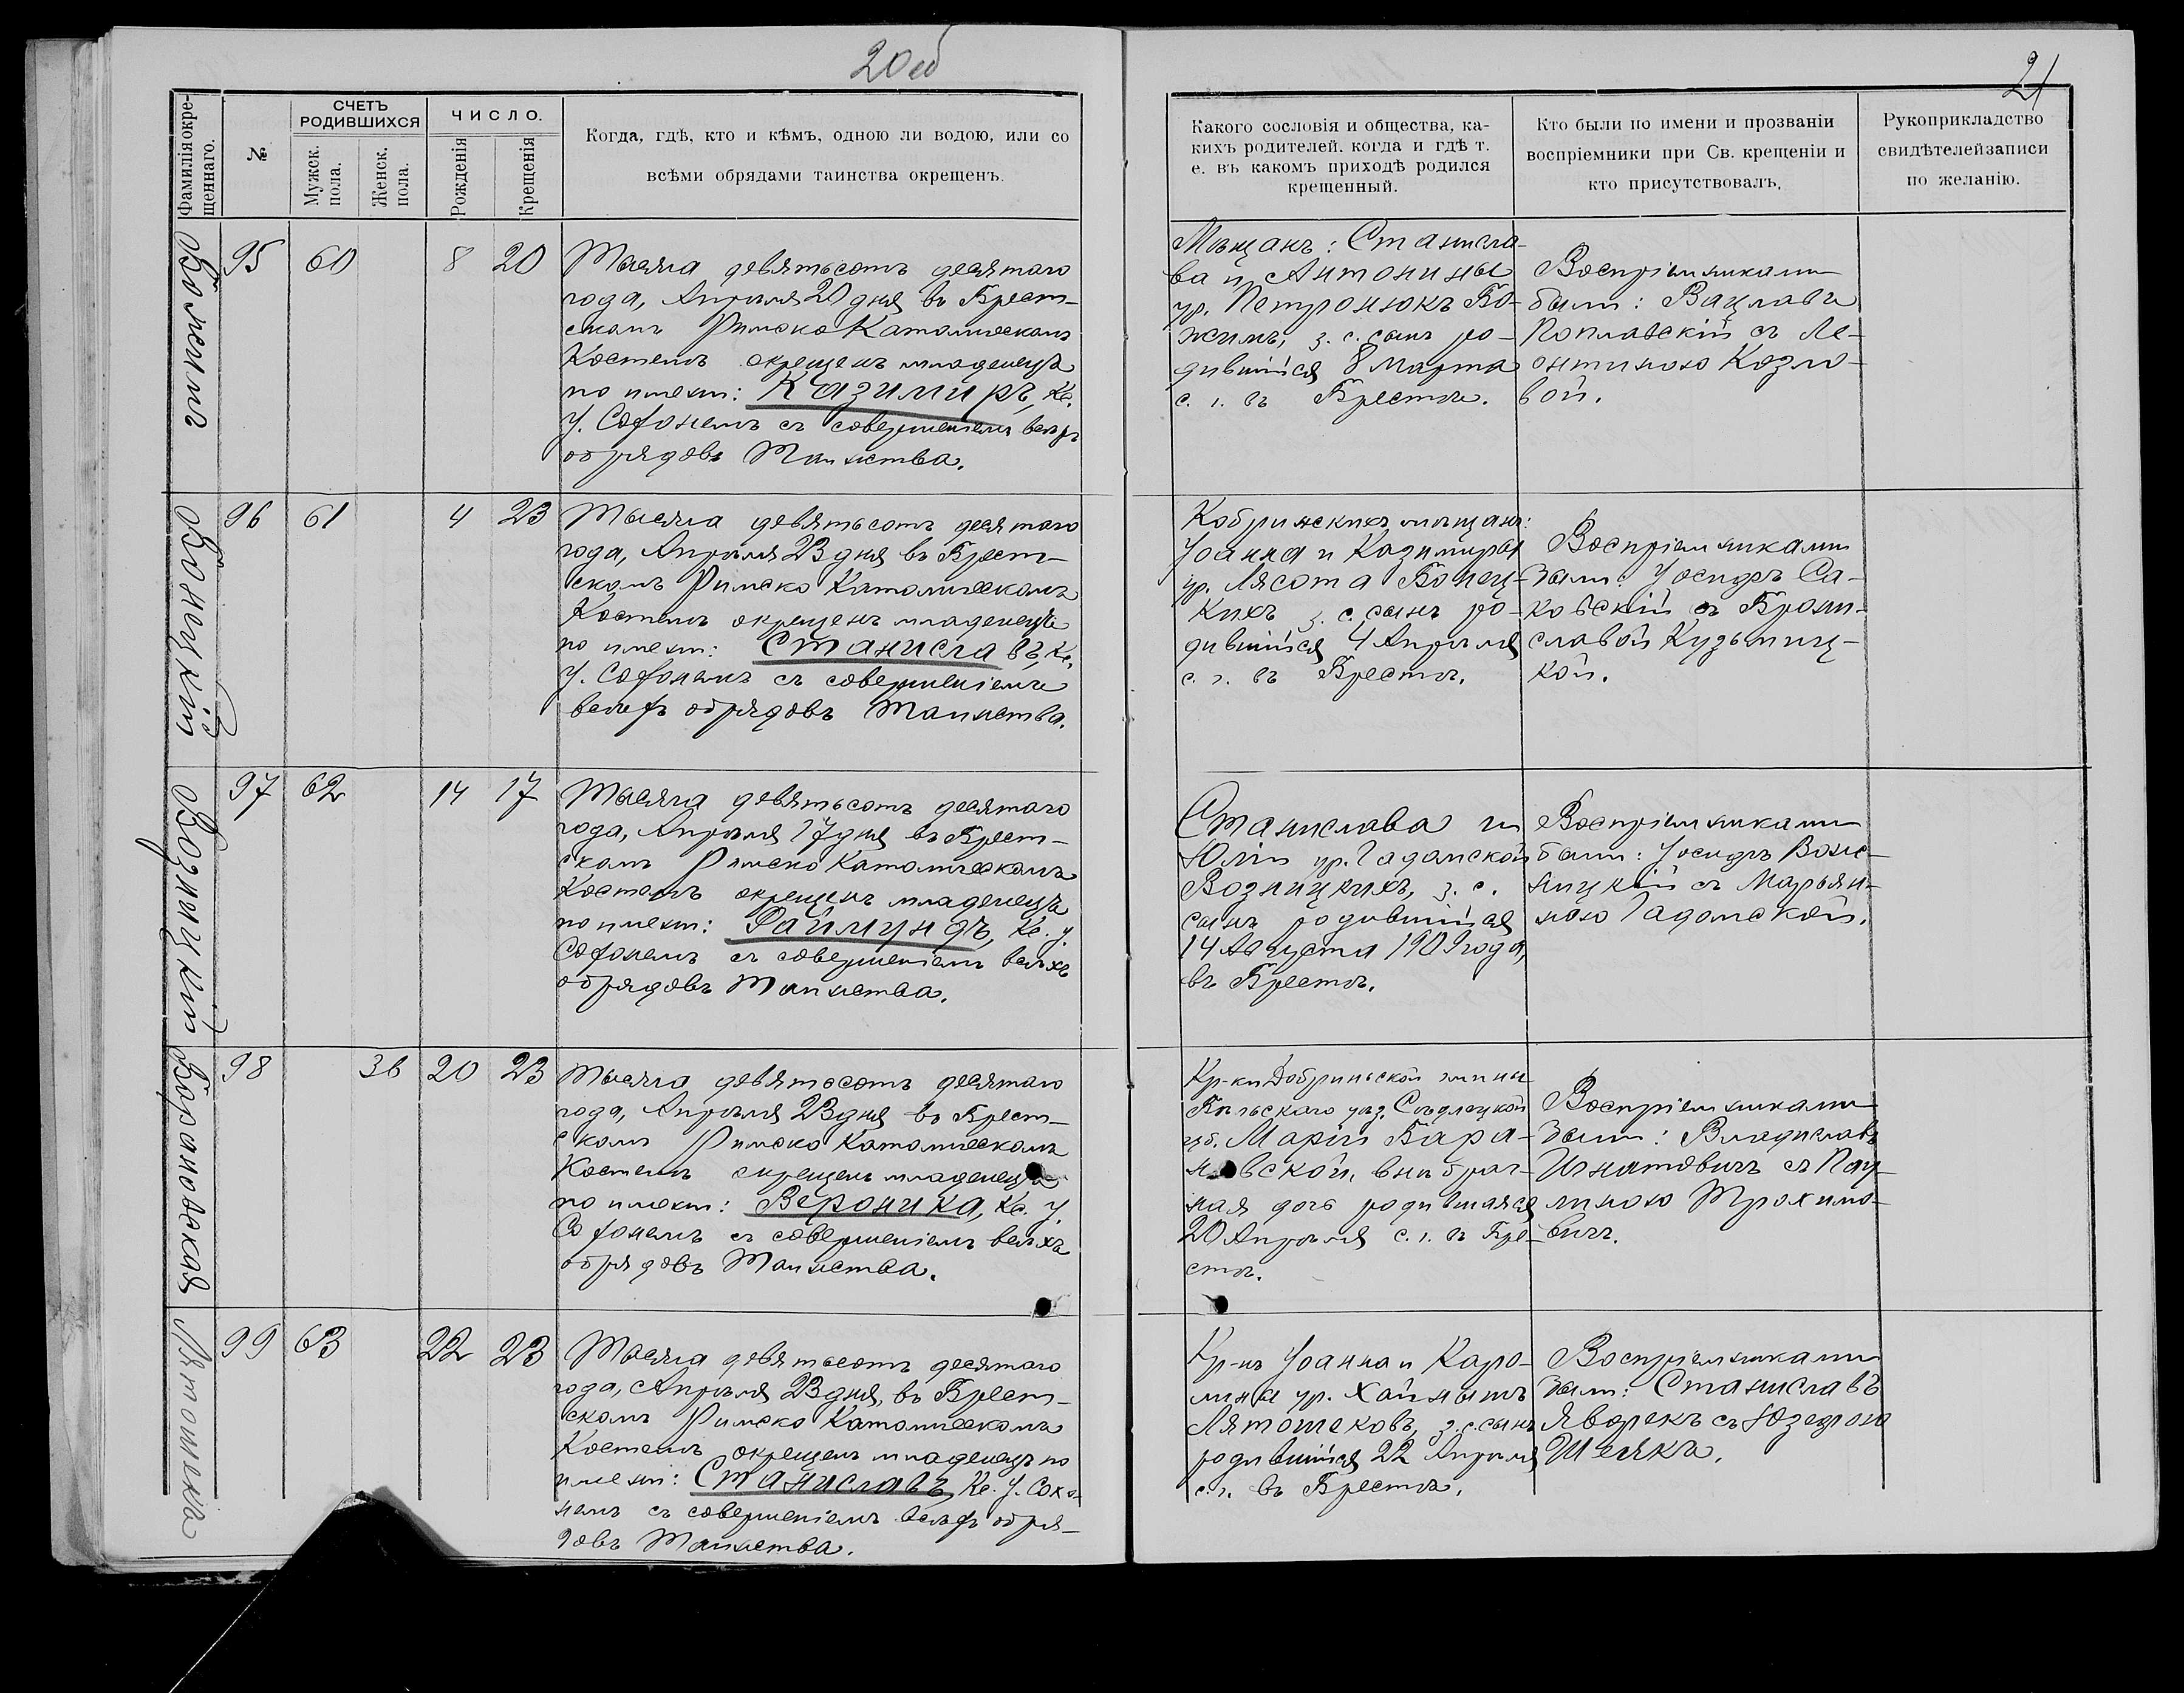 20 об
21
Фамилія окре-
щеннаго.
№
СЧЕТЪ
РОДИВШИХСЯ
Мужск.
пола.
Женск.
пола.
ЧИСЛО.
Рожденія
Крещенія
Когда, гдѣ, кто и кѣмъ, одною ли водою, или со
всѣми обрядами таинства окрещенъ.
Какого сословія и общества, ка-
кихъ родителей. когда и гдѣ т.
е. въ какомъ приходѣ родился
крещенный.
Кто были по имени и прозваніи
воспріемники при Св. крещеніи и
кто присутствовалъ.
Рукоприкладство
свидѣтелей записи
по желанію.
95 60 8 20
Тысяча девятьсотъ десятаго
года, Апрѣля 20 дня въ Брест-
скомъ Римско Католическомъ
Костелѣ окрещенъ младенецъ
по имени: Казимиръ, Кс.
І. с совершеніемъ всѣхъ
обрядовъ Таинства.
Мѣщанъ: Станисла-
ва и Антонины
ур. Петронюкъ Бо-
жимъ, з. с. сынъ ро-
дившійся 8 Марта
с. г. въ Брестѣ.
Воспріемниками
были: Вацлавъ
Поплавскій съ Ле-
онтиною Козло-
вой.
Бонецкій
96 61 4 23
Тысяча девятьсотъ десятаго
года, Апрѣля 23 дня въ Брест-
скомъ Римско Католическомъ
Костелѣ окрещенъ младенецъ
по имени: Станиславъ, Кс.
І. съ совершеніемъ
всѣхъ обрядовъ Таинства.
Кобринскихъ мѣщанъ:
Іоанна и Казимиры
ур. Лясота Бонец-
кихъ з. с. сынъ ро-
дившійся 4 Апрѣля
с. г. въ Брестѣ.
Воспріемниками
были: Іосифъ Са-
ковскій съ Брони-
славой Кузьмиц-
кой.
Возницкій
97 62 14 17
Тысяча девятьсотъ десятаго
года, Апрѣля 17 дня въ Брест-
скомъ Римско Католическомъ
Костелѣ окрещенъ младенецъ
по имени: Раймундъ, Кс. І.
съ совершеніемъ всѣхъ
обрядовъ Таинства.
Станислава и
Юліи ур. Гадомской
Возницкихъ, з. с.
сынъ родившійся
14 Августа 1909 года,
въ Брестѣ.
Воспріемниками
были: Іосифъ
съ Марьян-
ною Гадомской.
Барановская
98 36 20 23
Тысяча девятьсотъ десятаго
года, Апрѣля 23 дня въ Брест-
скомъ Римско Католическомъ
Костелѣ окрещенъ младенецъ
по имени: Вероника, Кс. І.
съ совершеніемъ всѣхъ
обрядовъ Таинства.
Кр-ки Добриньской гмины
Бѣльскаго уѣз. Сѣдлецкой
губ. Маріи Бара-
новской, внѣбрач-
ная дочь родившаяся
20 Апрѣля с. г. въ Бре-
стѣ.
Воспріемниками
были: Владиславъ
Игнатовичъ съ Пау-
линою Трохимо-
вичъ.
99 63 22 23
Тысяча девятьсотъ десятаго
года, Апрѣля 23 дня, въ Брест-
скомъ Римско Католическомъ
Костелѣ окрещенъ младенецъ по
имени: Станиславъ, Кс. І.
съ совершеніемъ всѣхъ обря-
довъ Таинства.
Кр-нъ Іоанна и Каро-
лины ур.
Лятошековъ, з. с. сынъ
родившійся 22 Апрѣля
с. г. въ Брестѣ.
Воспріемниками
были: Станиславъ
Яворекъ съ Юзефою